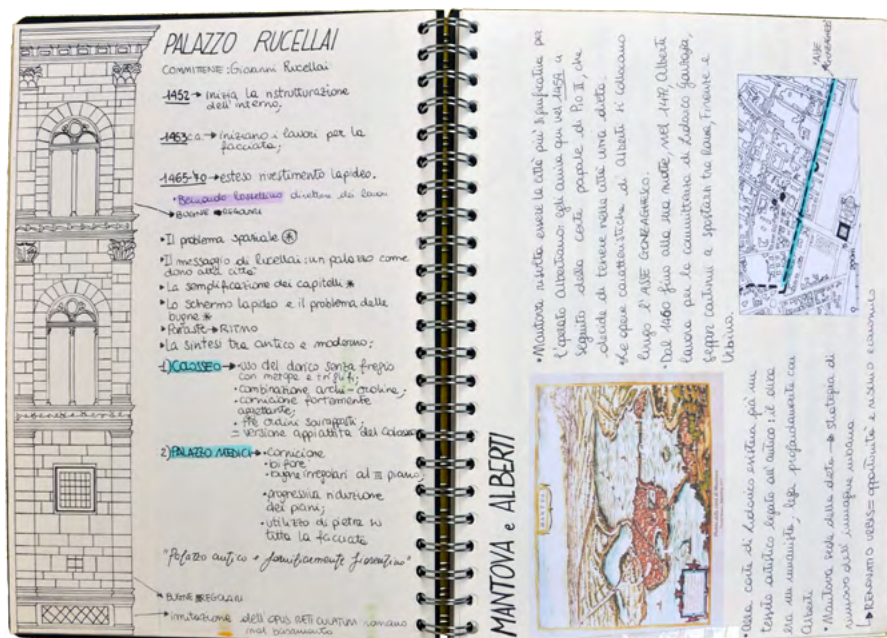 PALAZZO RUCELLAI
COMMITTENTE: Giovanni Rucellai
1452 → inizia la ristrutturazione
dell'interno;
1463ca → iniziano i lavori per la
facciata;
1465-70 → esteso rivestimento lapideo.
• Bernardo Rossellino direttore dei lavori
→ BUGNE REGOLARI
▸ Il problema spaziale *
▸ Il messaggio di Rucellai: un palazzo come
dono alla città
▸ La semplificazione dei capitelli *
▸ Lo schermo lapideo e il problema delle
bugne *
▸ Paraste → RITMO
▸ La sintesi tra antico e moderno;
1) COLOSSEO → • uso del dorico senza fregio
con metope e triglifi;
• combinazione archi-colonne;
• cornicione fortemente
aggettante;
• tre ordini sovrapposti;
= versione appiattita del Colosseo
2) PALAZZO MEDICI → • cornicione
• bifore
• bugne irregolari al III piano;
• progressiva riduzione
dei piani;
• utilizzo di pietra su
tutta la facciata
"Palazzo antico e fiorentino"
→ BUGNE REGOLARI
→ imitazione dell'OPUS RETICULATUM romano
nel basamento
MANTOVA e ALBERTI
• Mantova risulta essere la città più significativa per
l'operato albertiano: egli arriva qui nel 1459 a
seguito della corte papale di Pio II, che
decide di tenere nella città una dieta.
• Le opere caratteristiche di Alberti si collocano
lungo l'ASSE GONZAGHESCO.
• Dal 1460 fino alla sua morte, nel 1472, Alberti
lavora per la committenza di Ludovico Gonzaga,
seppur continui a spostarsi tra Roma, Firenze e
Urbino.
"ASSE
GONZAGHESCO"
MANTOVA
• Alla corte di Ludovico esisteva già un
artistico legato all'antico: il duca
era un umanista, lega profondamente con
Alberti
• Mantova sede della dieta → strategia di
rinnovo dell'immagine urbana
↳ RENOVATIO URBIS = opportunità e economico